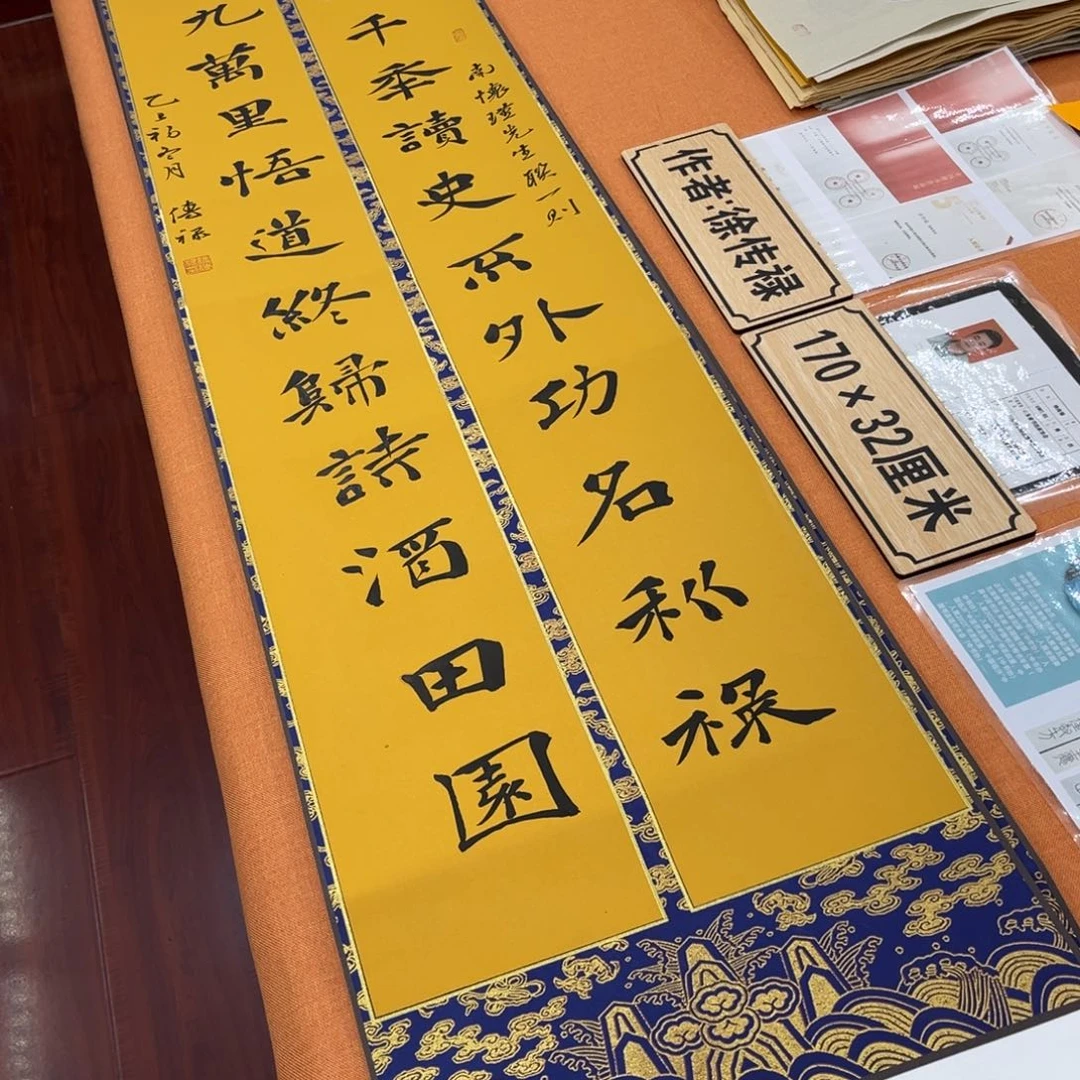 千年讀史不外功名利禄
南懷瑾先生聯一则
九萬里悟道終歸詩酒田園
乙巳
傳禄
作者:徐传禄
170×32厘米